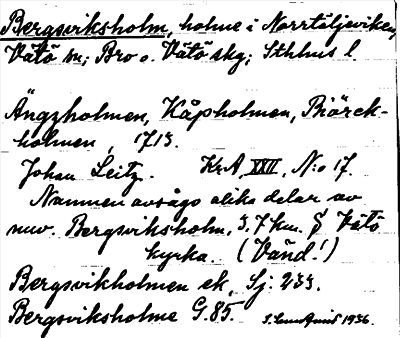 Bergsviksholm, holme i Norrtäljeviken,
Vätö sn; Bro o. Vätö skg; Sthlms l.
Ängzholmen, Kåpholmen, Biörck-
holmen, 1713.
Johan Leitz. KrA, XXII, N:o 17.
Namnen avsågo olika delar av
nuv. Bergsviksholm, 3,7 km. S Vätö
kyrka. (Vänd!)
Bergsvikholmen ek, Sj: 233.
Bergsviksholme G.85. 1936.